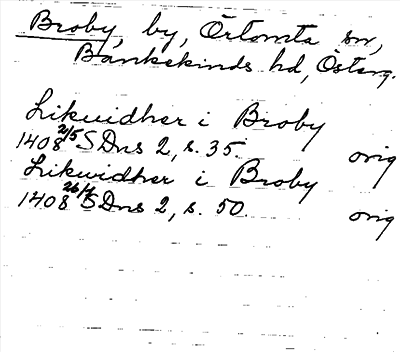 Broby, by, Örtomta sn,
Bankekinds hd, Österg.
Likwidher i Broby
1408 21/5 SDns 2, s. 35. orig
Likwidher i Broby
1408 26/7 SDns 2, s. 50. orig